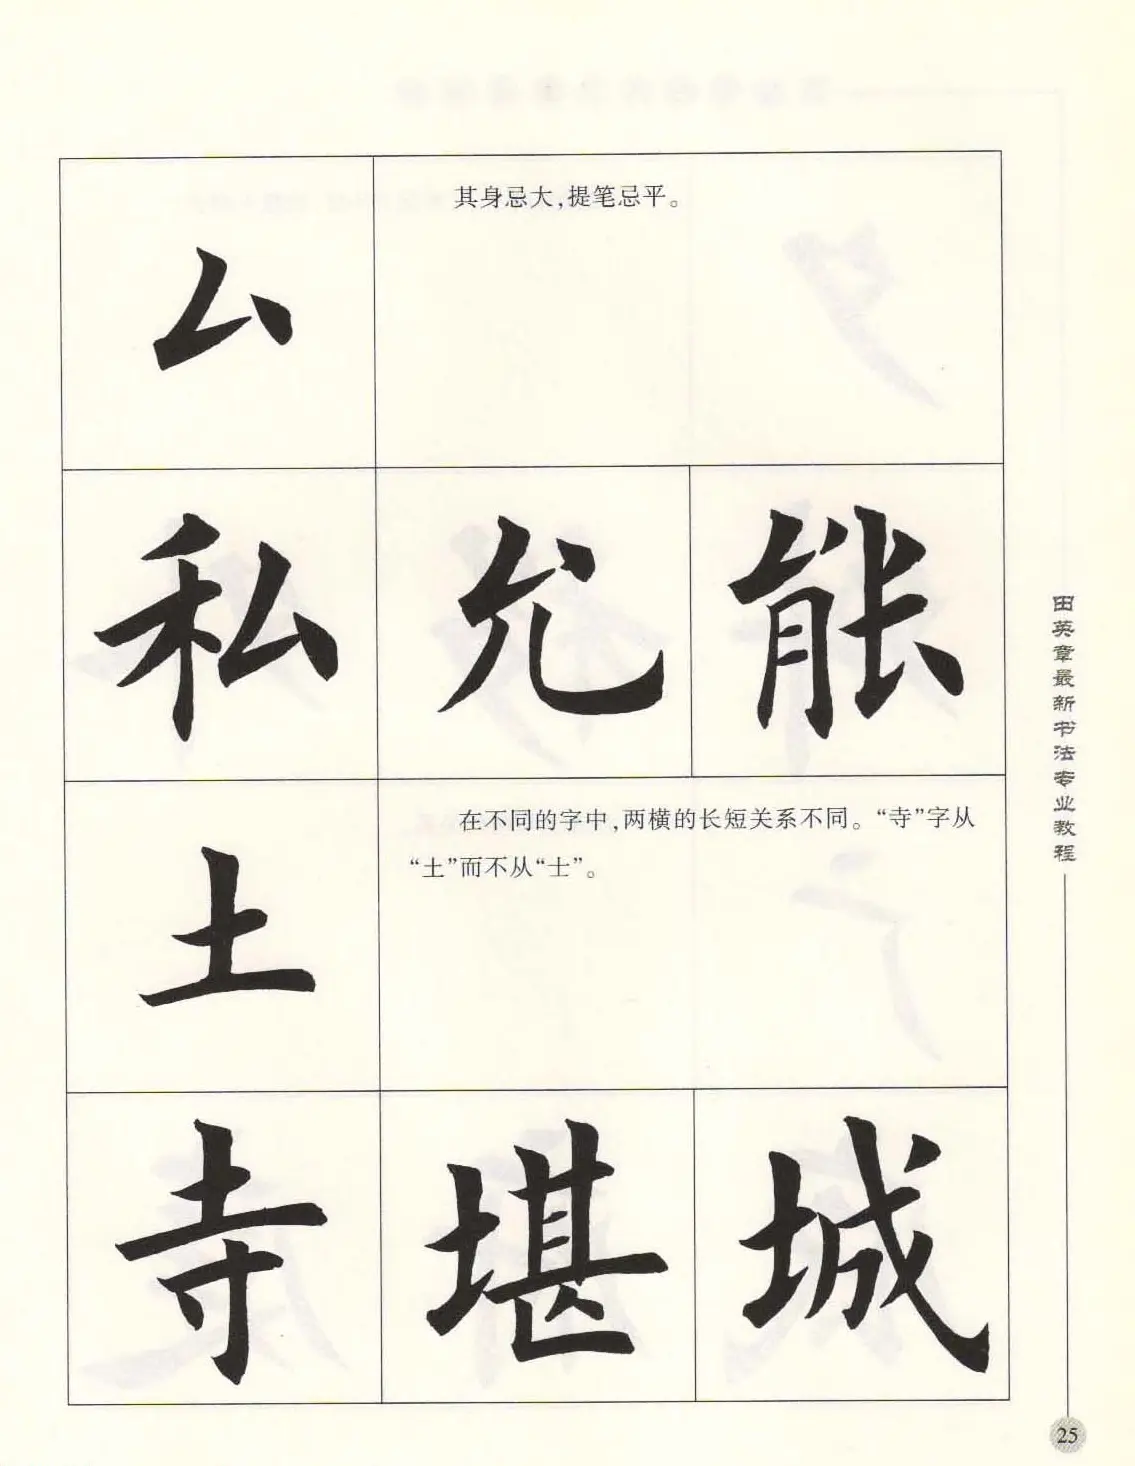 厶
其身忌大,提笔忌平。
私 允 能
土
在不同的字中,两横的长短关系不同。“寺”字从
“土”而不从“士”。
寺 堪 城
田英章最新书法专业教程
25